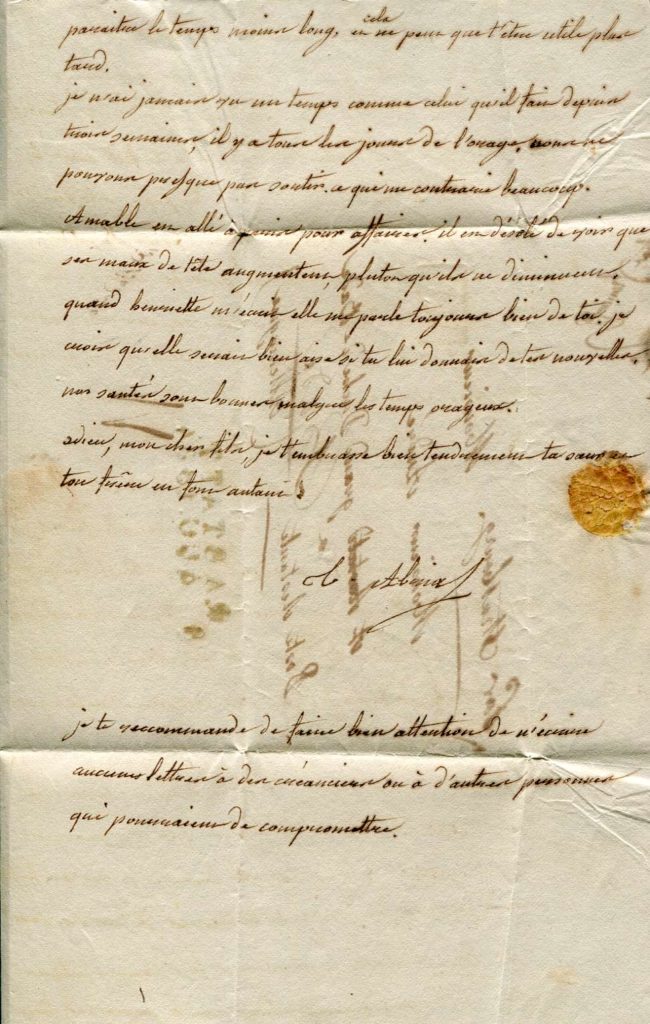 paraitre le temps moins long, cela ne peut que t'être utile plus
tard.
je n'ai jamais vu un temps comme celui qu'il fait depuis
trois semaines, il y a tous les jours de l'orage, nous ne
pouvons presque pas sortir. ce qui me contrarie beaucoup.
Amable est allé à paris pour affaires. il est désolé de voir que
ses maux de tête augmentent plutot qu'ils ne diminuent.
quand henriette m'écrit elle me parle toujours bien de toi. je
crois qu'elle serait bien aise si tu lui donnais de tes nouvelles.
nos santés sont bonnes malgré les temps orageux.
adieu, mon cher fils, je t'embrasse bien tendrement ta sœur et
ton frêre en font autant.
je te reccommande de faire bien attention de n'écrire
aucunes lettres à des créanciers ou à d'autres personnes
qui pourraient de compromettre.